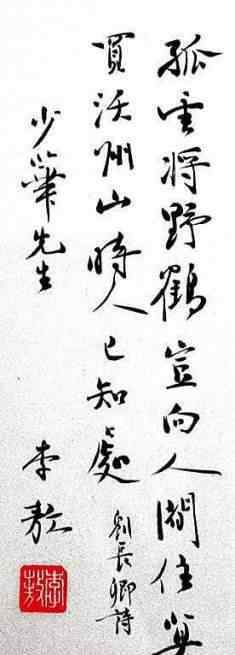 孤雲將野鶴豈向人間住莫
買沃州山時人已知處劉長卿詩
少華先生
李敖
李敖